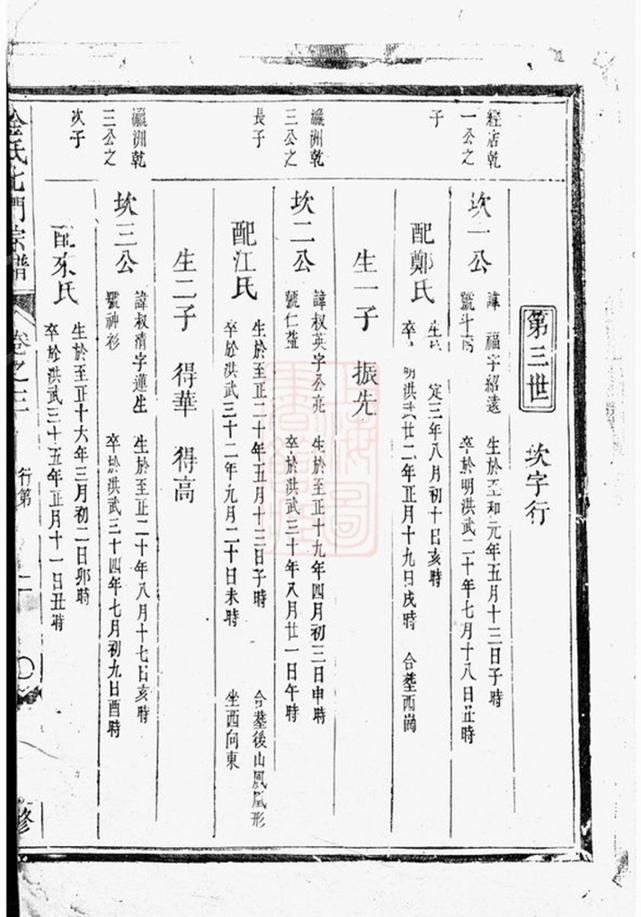 第三世
坎字行
經店乾
一公之
子
坎一公
諱 福字紹遠
號
生於至和元年五月十三日子時
卒於明洪武二十年七月十八日丑時
配鄭氏
生 定三年八月初十日亥時
卒 明洪武廿二年正月十九日戌時
合塟西崗
生一子 振先
瀛洲乾
三公之
長子
坎二公
諱叔英字公亮
號仁菫
生於至正十九年四月初三日申時
卒於洪武三十年八月廿一日午時
配江氏
生於至正二十年五月十三日子時
卒於洪武三十二年九月二十日未時
合塟後山鳳凰形
坐西向東
生二子 得華 得高
瀛洲乾
三公之
次子
坎三公
諱叔清字蓮生
號神衫
生於至正二十年八月十七日亥時
卒於洪武三十四年七月初九日酉時
配 氏
生於至正十六年三月初二日卯時
卒於洪武三十五年正月十一日丑時
氏北門宗譜
卷之三
行第
二
修